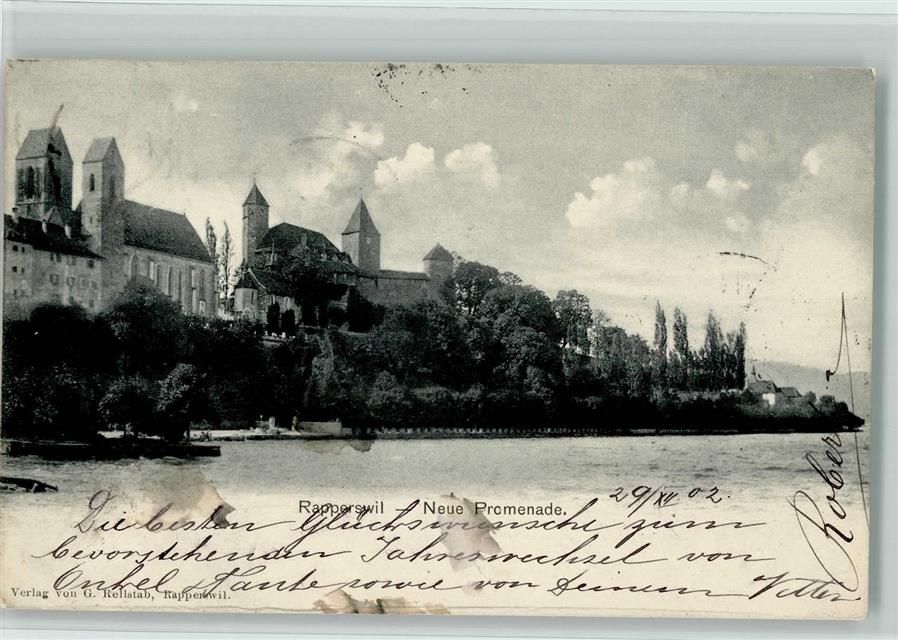 Rapperswil Neue Promenade.
29/XII 02.
Die besten Glückswünsche zum
bevorstehenden Jahreswechsel von
Onkel & Tante sowie von Deinem Vetter
Robert
Verlag von G. Rellstab, Rapperswil.